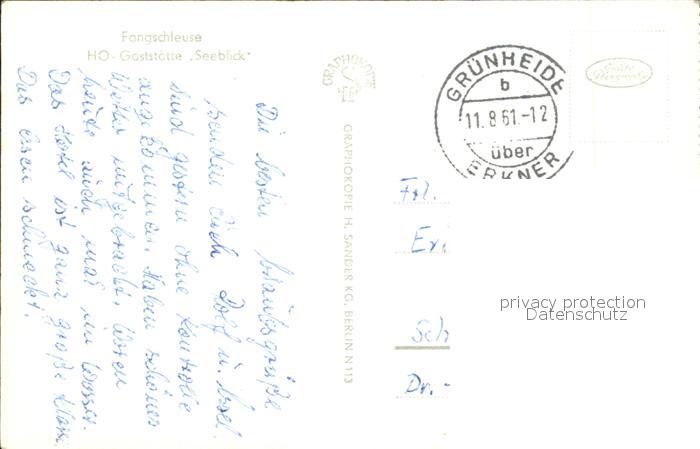 Fangschleuse
HO-Gaststätte „Seeblick"
GRAPHOKOPIE
H
GRAPHOKOPIE H. SANDER KG. BERLIN N 113
GRÜNHEIDE
b
11.8.61.-12
über
ERKNER
Echte
Die besten Urlaubsgrüße
senden Euch Rolf u.
sind gestern ohne Kontrolle
angekommen. Haben schönes
Wetter mitgebracht. Waren
heute auch mal im Wasser.
Das Hotel ist ganz große Klasse.
Das Essen schmeckt.
Frl.
Er
Sch
Dr.-
privacy protection
Datenschutz